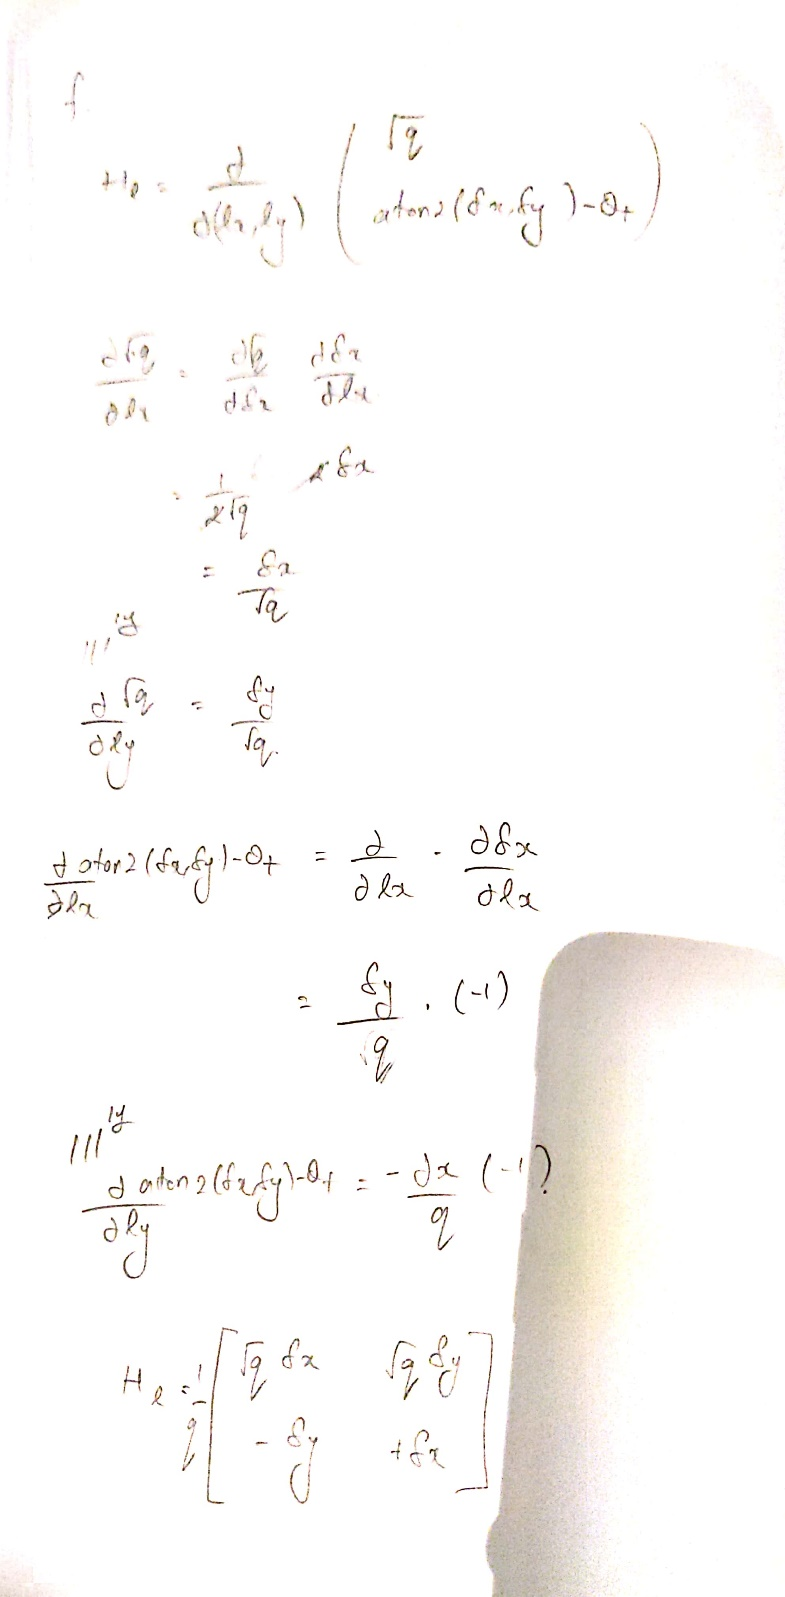 f.
√q
H_l = ∂/∂(lx, ly) ( atan2(δx, δy) - θt )
∂√q/∂lx = ∂√q/∂δx ∂δx/∂lx
= 1/2√q 2δx
= δx/√q
|||ly
∂√q/∂ly = δy/√q.
∂/∂lx atan2(δx, δy) - θt = ∂/∂lx . ∂δx/∂lx
= δy/q . (-1)
|||ly
∂/∂ly atan2(δx, δy) - θt = - δx/q (-1)
H_l = 1/q [ √q δx √q δy
- δy + δx ]